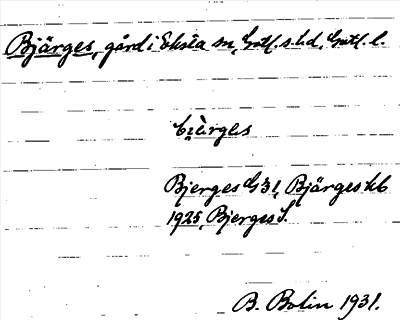 Bjärges, gård i Eksta sn, Gotl. s. hd, Gotl. l.
Bjerges G 31, Bjärges kb
1925, Bjerges J.
B. Bolin 1931.